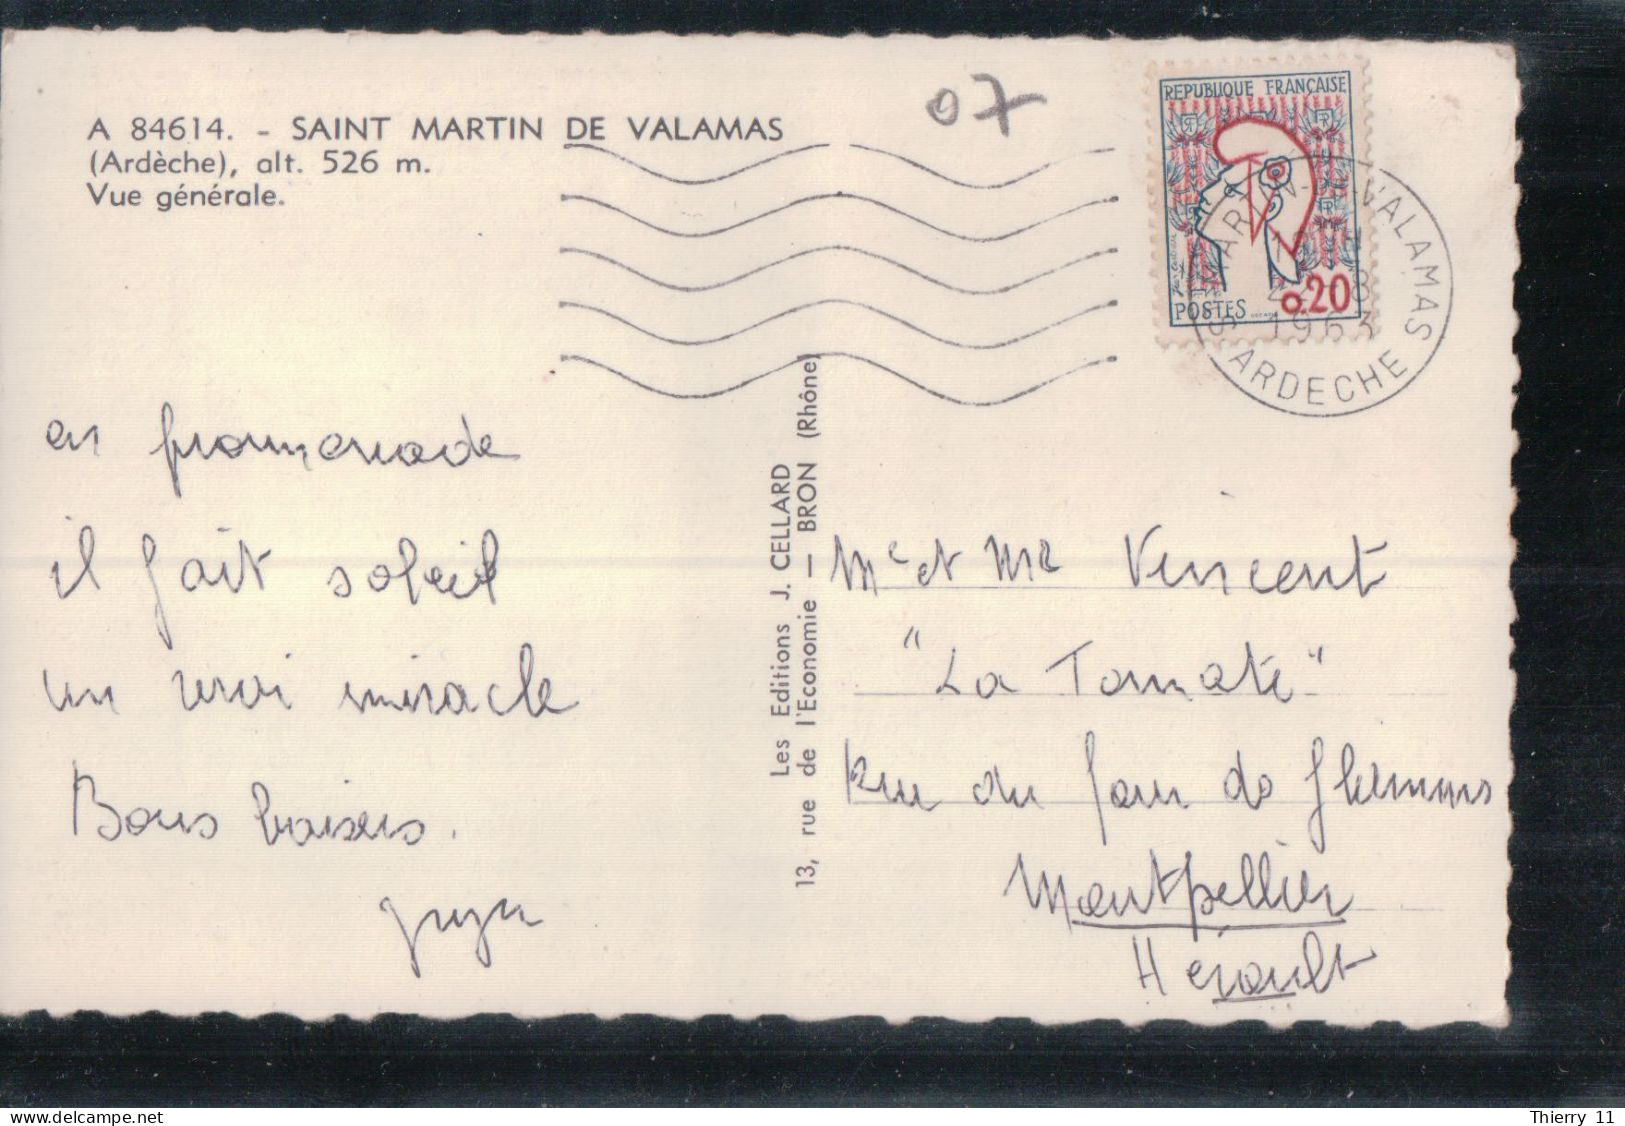 A 84614. - SAINT MARTIN DE VALAMAS
(Ardèche), alt. 526 m.
Vue générale.
07
REPUBLIQUE FRANÇAISE
POSTES 0.20
VALAMAS
1963
ARDECHE
en promenade
il fait soleil
un vrai miracle
Bons baisers.
Les Editions J. CELLARD
13, rue de l'Economie — BRON (Rhône)
Me et Mr Vincent
"La Tomate"
Rue du de
Montpellier
Hérault
delcampe.net
Thierry 11